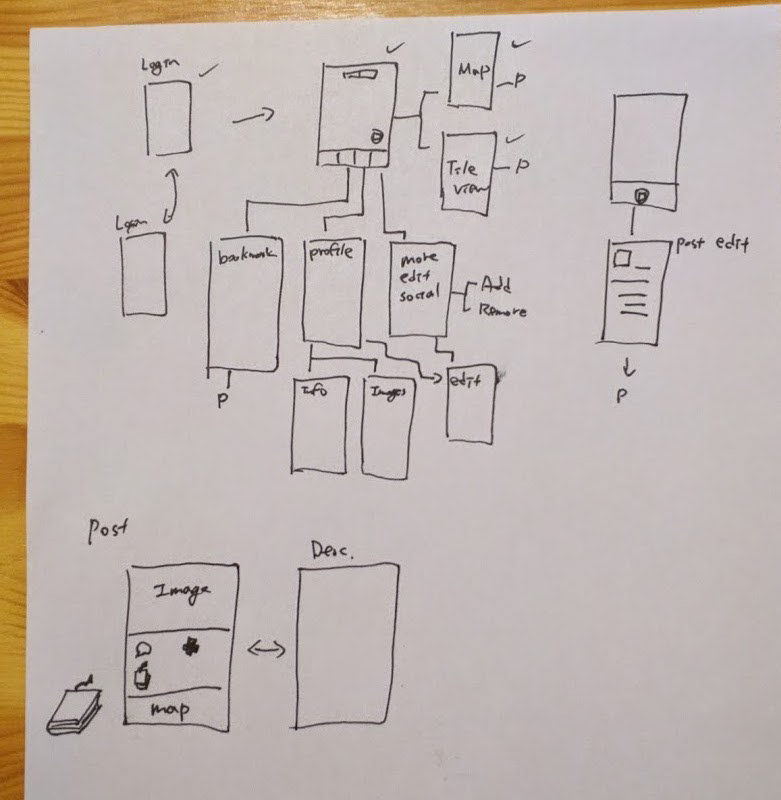 Login
Map
P
Tile
view
P
Login
bookmark
profile
more
edit
social
Add
Remove
post edit
P
Info
Images
edit
P
Post
Image
map
Desc.